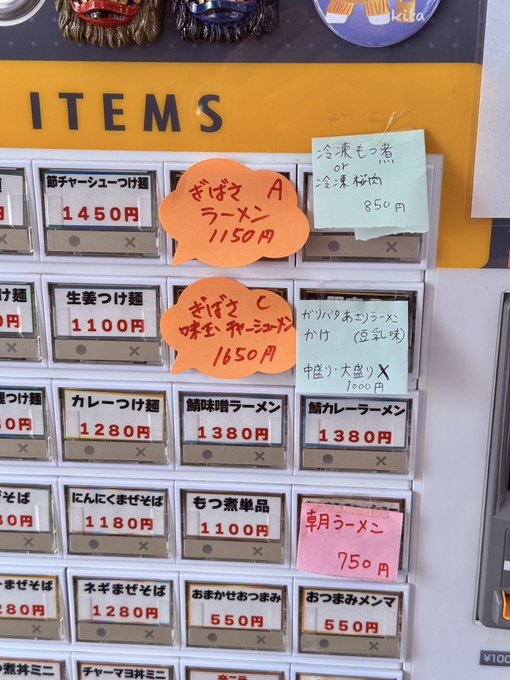 kita
ITEMS
節チャーシューつけ麺
1450円
ぎばさ A
ラーメン
1150円
冷凍もつ煮
or
冷凍桜肉
850円
け麺
0円
生姜つけ麺
1100円
ぎばさ C
味玉チャーシューメン
1650円
ガリバタあさりラーメン
かけ (豆乳味)
中盛り・大盛り X
1000円
つけ麺
0円
カレーつけ麺
1280円
鯖味噌ラーメン
1380円
鯖カレーラーメン
1380円
ぜそば
80円
にんにくまぜそば
1180円
もつ煮単品
1100円
朝ラーメン
750円
まぜそば
280円
ネギまぜそば
1280円
おまかせおつまみ
550円
おつまみメンマ
550円
煮丼ミニ
チャーマヨ丼ミニ
¥100